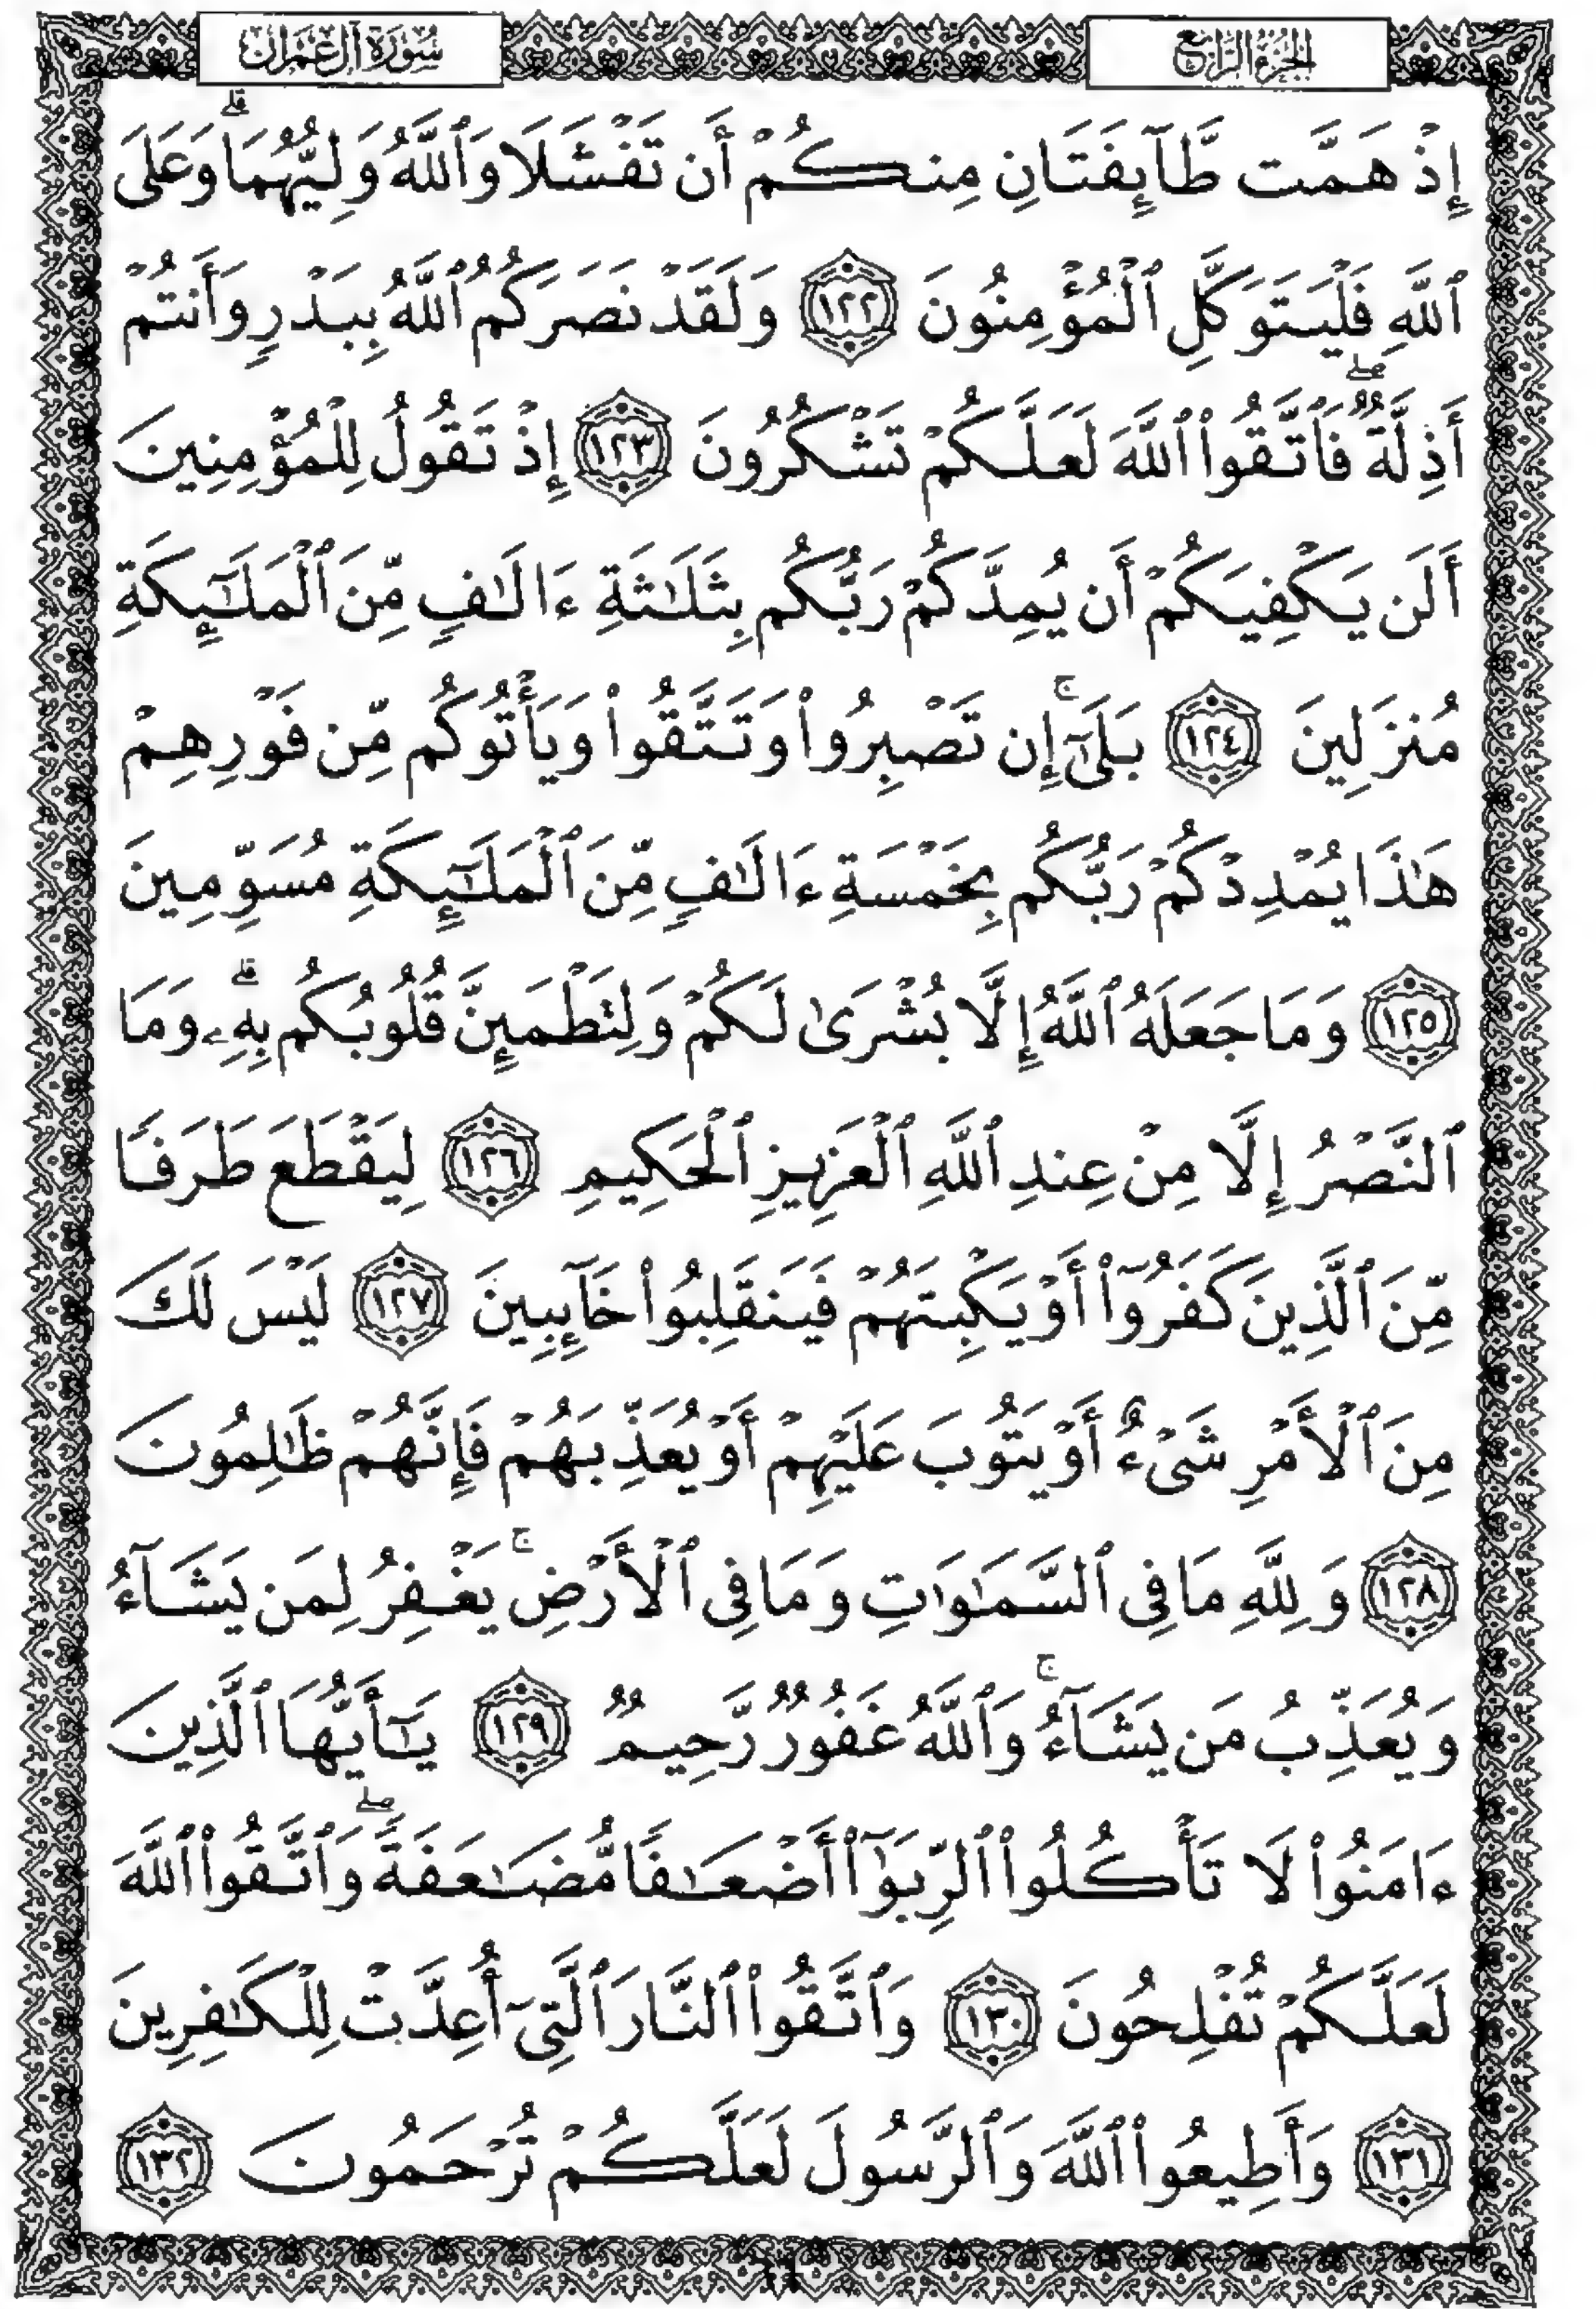 الجزء الرابع
سورة آل عمران
إِذْ هَمَّت طَّآئِفَتَانِ مِنكُمْ أَن تَفْشَلَا وَٱللَّهُ وَلِيُّهُمَا ۗ وَعَلَى
ٱللَّهِ فَلْيَتَوَكَّلِ ٱلْمُؤْمِنُونَ ١٢٢ وَلَقَدْ نَصَرَكُمُ ٱللَّهُ بِبَدْرٍ وَأَنتُمْ
أَذِلَّةٌ ۖ فَٱتَّقُوا۟ ٱللَّهَ لَعَلَّكُمْ تَشْكُرُونَ ١٢٣ إِذْ تَقُولُ لِلْمُؤْمِنِينَ
أَلَن يَكْفِيَكُمْ أَن يُمِدَّكُمْ رَبُّكُم بِثَلَـٰثَةِ ءَالَـٰفٍ مِّنَ ٱلْمَلَـٰٓئِكَةِ
مُنزَلِينَ ١٢٤ بَلَىٰٓ ۚ إِن تَصْبِرُوا۟ وَتَتَّقُوا۟ وَيَأْتُوكُم مِّن فَوْرِهِمْ
هَـٰذَا يُمْدِدْكُمْ رَبُّكُم بِخَمْسَةِ ءَالَـٰفٍ مِّنَ ٱلْمَلَـٰٓئِكَةِ مُسَوِّمِينَ
١٢٥ وَمَا جَعَلَهُ ٱللَّهُ إِلَّا بُشْرَىٰ لَكُمْ وَلِتَطْمَئِنَّ قُلُوبُكُم بِهِۦ ۗ وَمَا
ٱلنَّصْرُ إِلَّا مِنْ عِندِ ٱللَّهِ ٱلْعَزِيزِ ٱلْحَكِيمِ ١٢٦ لِيَقْطَعَ طَرَفًا
مِّنَ ٱلَّذِينَ كَفَرُوٓا۟ أَوْ يَكْبِتَهُمْ فَيَنقَلِبُوا۟ خَآئِبِينَ ١٢٧ لَيْسَ لَكَ
مِنَ ٱلْأَمْرِ شَىْءٌ أَوْ يَتُوبَ عَلَيْهِمْ أَوْ يُعَذِّبَهُمْ فَإِنَّهُمْ ظَـٰلِمُونَ
١٢٨ وَلِلَّهِ مَا فِى ٱلسَّمَـٰوَٰتِ وَمَا فِى ٱلْأَرْضِ ۚ يَغْفِرُ لِمَن يَشَآءُ
وَيُعَذِّبُ مَن يَشَآءُ ۚ وَٱللَّهُ غَفُورٌ رَّحِيمٌ ١٢٩ يَـٰٓأَيُّهَا ٱلَّذِينَ
ءَامَنُوا۟ لَا تَأْكُلُوا۟ ٱلرِّبَوٰٓا۟ أَضْعَـٰفًا مُّضَـٰعَفَةً ۖ وَٱتَّقُوا۟ ٱللَّهَ
لَعَلَّكُمْ تُفْلِحُونَ ١٣٠ وَٱتَّقُوا۟ ٱلنَّارَ ٱلَّتِىٓ أُعِدَّتْ لِلْكَـٰفِرِينَ
١٣١ وَأَطِيعُوا۟ ٱللَّهَ وَٱلرَّسُولَ لَعَلَّكُمْ تُرْحَمُونَ ١٣٢